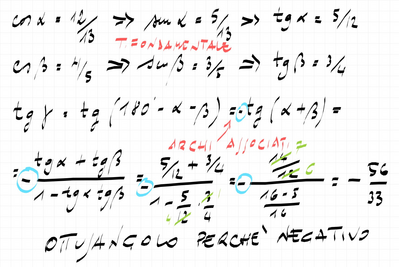 cos α = 12/13 => sin α = 5/13 => tg α = 5/12
T. FONDAMENTALE
cos β = 4/5 => sin β = 3/5 => tg β = 3/4
tg γ = tg (180° - α - β) = - tg (α + β) =
ARCHI ASSOCIATI
= - (tg α + tg β)/(1 - tg α · tg β) = - (5/12 + 3/4)/(1 - 5/12 · 3/4) = - / ((16 - 5)/16) = - 56/33
OTTUSANGOLO PERCHE' NEGATIVO